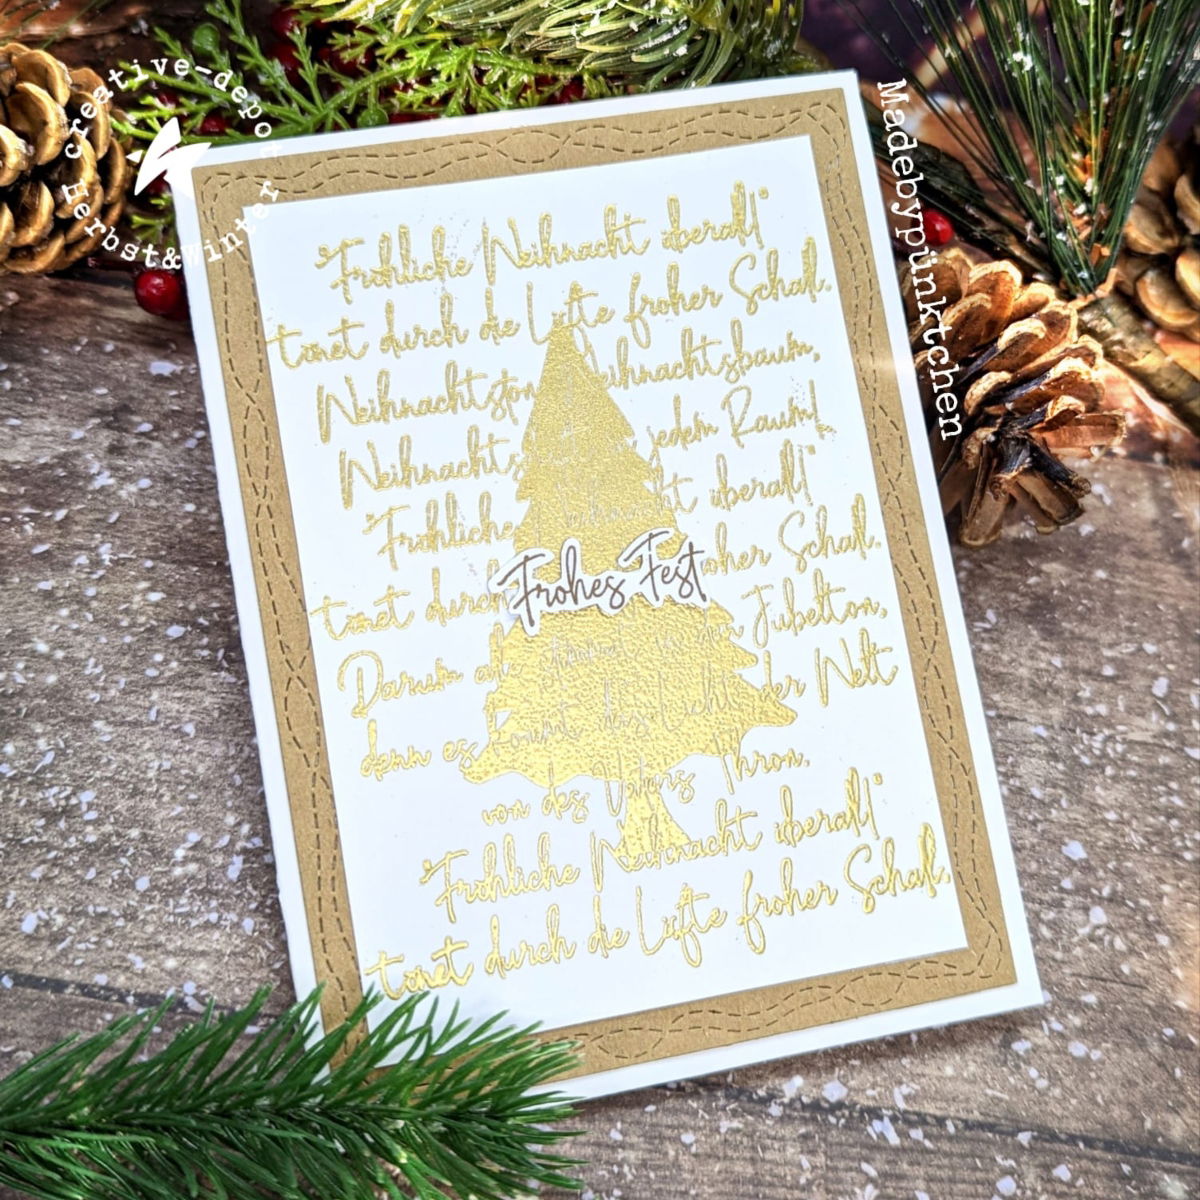 creative-depot
Herbst&Winter
Madebypünktchen
"Fröhliche Weihnacht überall!"
tönet durch die Lüfte froher Schall.
Weihnachtston, Weihnachtsbaum,
Weihnachts jedem Raum!
"Fröhliche Weihnacht überall!"
tönet durch froher Schall.
Frohes Fest
Darum alle stimmet in den Jubelton,
denn es kommt das Licht der Welt
von des Vaters Thron.
"Fröhliche Weihnacht überall!"
tönet durch die Lüfte froher Schall.